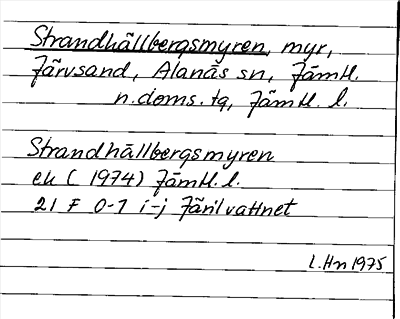 Strandhällbergsmyren, myr,
Järvsand, Alanäs sn, Jämtl.
n. doms. tg, Jämtl. l.
Strandhällbergsmyren
ek (1974) Jämtl. l.
21 F 0-1 i-j Järilvattnet
L.Hn 1975